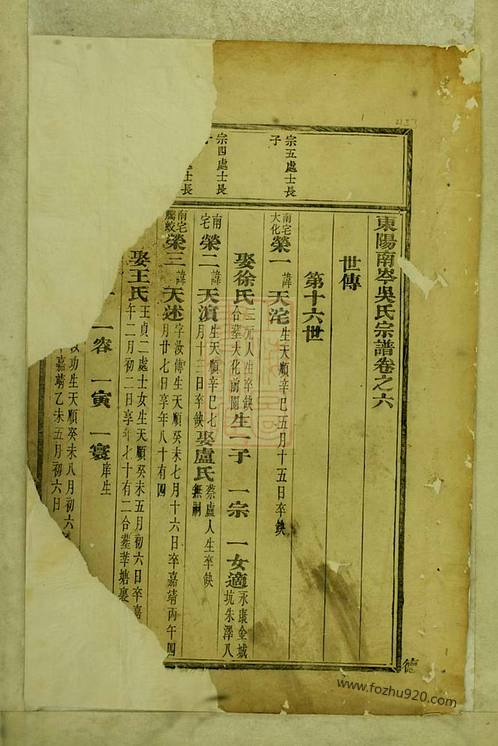 東陽南岑吳氏宗譜卷之六
世傳
第十六世
宗五處士長
子
南宅
大化
榮一 諱天沱 生天順辛巳五月十五日卒缺
娶徐氏 三元人生卒缺
合墓大化前園
生一子 一宗 一女適 永康金城
坑朱澤八
宗四處士長
子
南
宅
榮二 諱天滇 生天順辛巳七
月十日卒缺
娶盧氏 蔡盧人生卒缺
無祠
士長
南宅
榮三 諱天述 字汝傳生天順癸未七月十六日卒嘉靖丙午四
月廿七日享年八十有四
娶王氏 王貞二處士女生天順癸未五月初六日卒嘉
午二月初二日享年七十有二合墓莘塘裏
一容 一寅 一寰 庠生
汝功生天順癸未八月初六
嘉靖乙未五月初六日
德
www.fozhu920.com